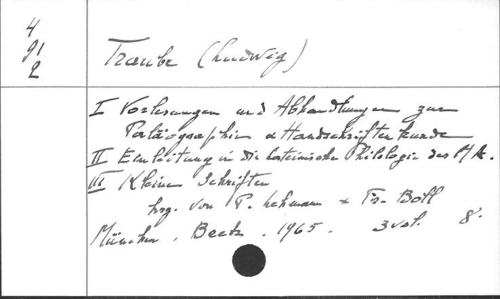 4
91
2
Traube (Ludwig)
I Vorlesungen und Abhandlungen zur
Paläographie & Handschriftenkunde
II Einleitung in die lateinische Philologie des MA.
III Kleine Schriften
hrg. von P. Lehmann & Fr. Boll
München, Beck, 1965. 3 vol. 8°.